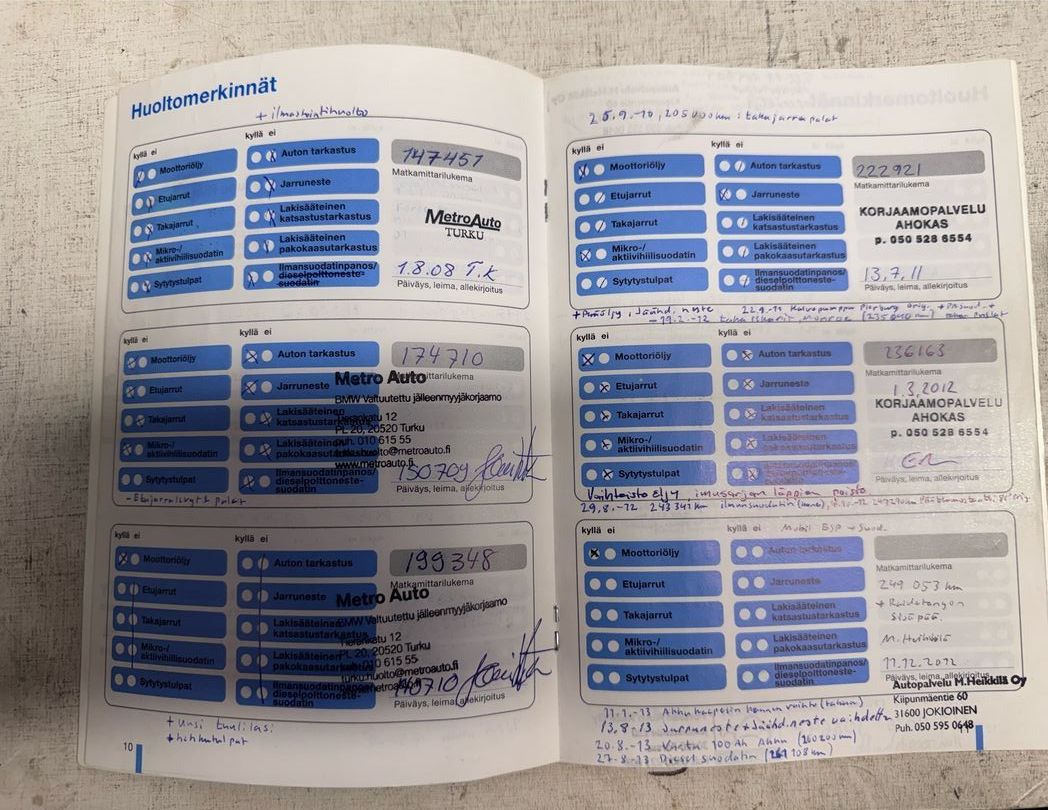 Huoltomerkinnät
+ ilmastointihuolto
kyllä ei
kyllä ei
Moottoriöljy
Auton tarkastus
147451
Matkamittarilukema
Etujarrut
Jarruneste
Takajarrut
Lakisääteinen katsastustarkastus
MetroAuto
TURKU
Mikro-/ aktiivihiilisuodatin
Lakisääteinen pakokaasutarkastus
Sytytystulpat
Ilmansuodatinpanos/ dieselpolttoneste-suodatin
1.8.08 T.K
Päiväys, leima, allekirjoitus
kyllä ei
kyllä ei
Moottoriöljy
Auton tarkastus
174710
Matkamittarilukema
Etujarrut
Jarruneste
Metro Auto
BMW Valtuutettu jälleenmyyjäkorjaamo
Takajarrut
Lakisääteinen katsastustarkastus
12
PL 20, 20520 Turku
puh. 010 615 55
Mikro-/ aktiivihiilisuodatin
Lakisääteinen pakokaasutarkastus
turku.huolto@metroauto.fi
www.metroauto.fi
Sytytystulpat
Ilmansuodatinpanos/ dieselpolttoneste-suodatin
150709
Päiväys, leima, allekirjoitus
- Etujarrulevyt + palat
kyllä ei
kyllä ei
Moottoriöljy
Auton tarkastus
199348
Matkamittarilukema
Etujarrut
Jarruneste
Metro Auto
BMW Valtuutettu jälleenmyyjäkorjaamo
Takajarrut
Lakisääteinen katsastustarkastus
12
PL 20, 20520 Turku
puh. 010 615 55
Mikro-/ aktiivihiilisuodatin
Lakisääteinen pakokaasutarkastus
turku.huolto@metroauto.fi
Sytytystulpat
Ilmansuodatinpanos/ dieselpolttoneste-suodatin
Päiväys, leima, allekirjoitus
+ uusi tuulilasi
+ hehkutulpat
10
205000km : takajarrupalat
kyllä ei
kyllä ei
Moottoriöljy
Auton tarkastus
222921
Matkamittarilukema
Etujarrut
Jarruneste
KORJAAMOPALVELU
AHOKAS
p. 050 528 6554
Takajarrut
Lakisääteinen katsastustarkastus
Mikro-/ aktiivihiilisuodatin
Lakisääteinen pakokaasutarkastus
Sytytystulpat
Ilmansuodatinpanos/ dieselpolttoneste-suodatin
13.7.11
Päiväys, leima, allekirjoitus
neste
Monroe
kyllä ei
kyllä ei
Moottoriöljy
Auton tarkastus
236163
Matkamittarilukema
Etujarrut
Jarruneste
1.3.2012
KORJAAMOPALVELU
AHOKAS
p. 050 528 6554
Takajarrut
Lakisääteinen katsastustarkastus
Mikro-/ aktiivihiilisuodatin
Lakisääteinen pakokaasutarkastus
Sytytystulpat
Päiväys, leima, allekirjoitus
Vaihteistoöljy, imusarjan läppien poisto
29.8.-12 243341km ilmansuodatin
kyllä ei
kyllä ei
Mobil ESP + Suod.
Moottoriöljy
Auton tarkastus
Matkamittarilukema
Etujarrut
Jarruneste
249 053 km
+ Raidetangon
sisäpää.
Takajarrut
Lakisääteinen katsastustarkastus
Mikro-/ aktiivihiilisuodatin
Lakisääteinen pakokaasutarkastus
M. Heikkilä
Sytytystulpat
Ilmansuodatinpanos/ dieselpolttoneste-suodatin
11.12.2012
Päiväys, leima, allekirjoitus
Autopalvelu M.Heikkilä Oy
Kiipunmäentie 60
31600 JOKIOINEN
Puh. 050 595 0648
vaihto
13.8.-13 Jarruneste + Jäähd.neste vaihdettu
20.8.-13 100 Ah Akku (260200km)
27.8.-13 Diesel suodatin
11